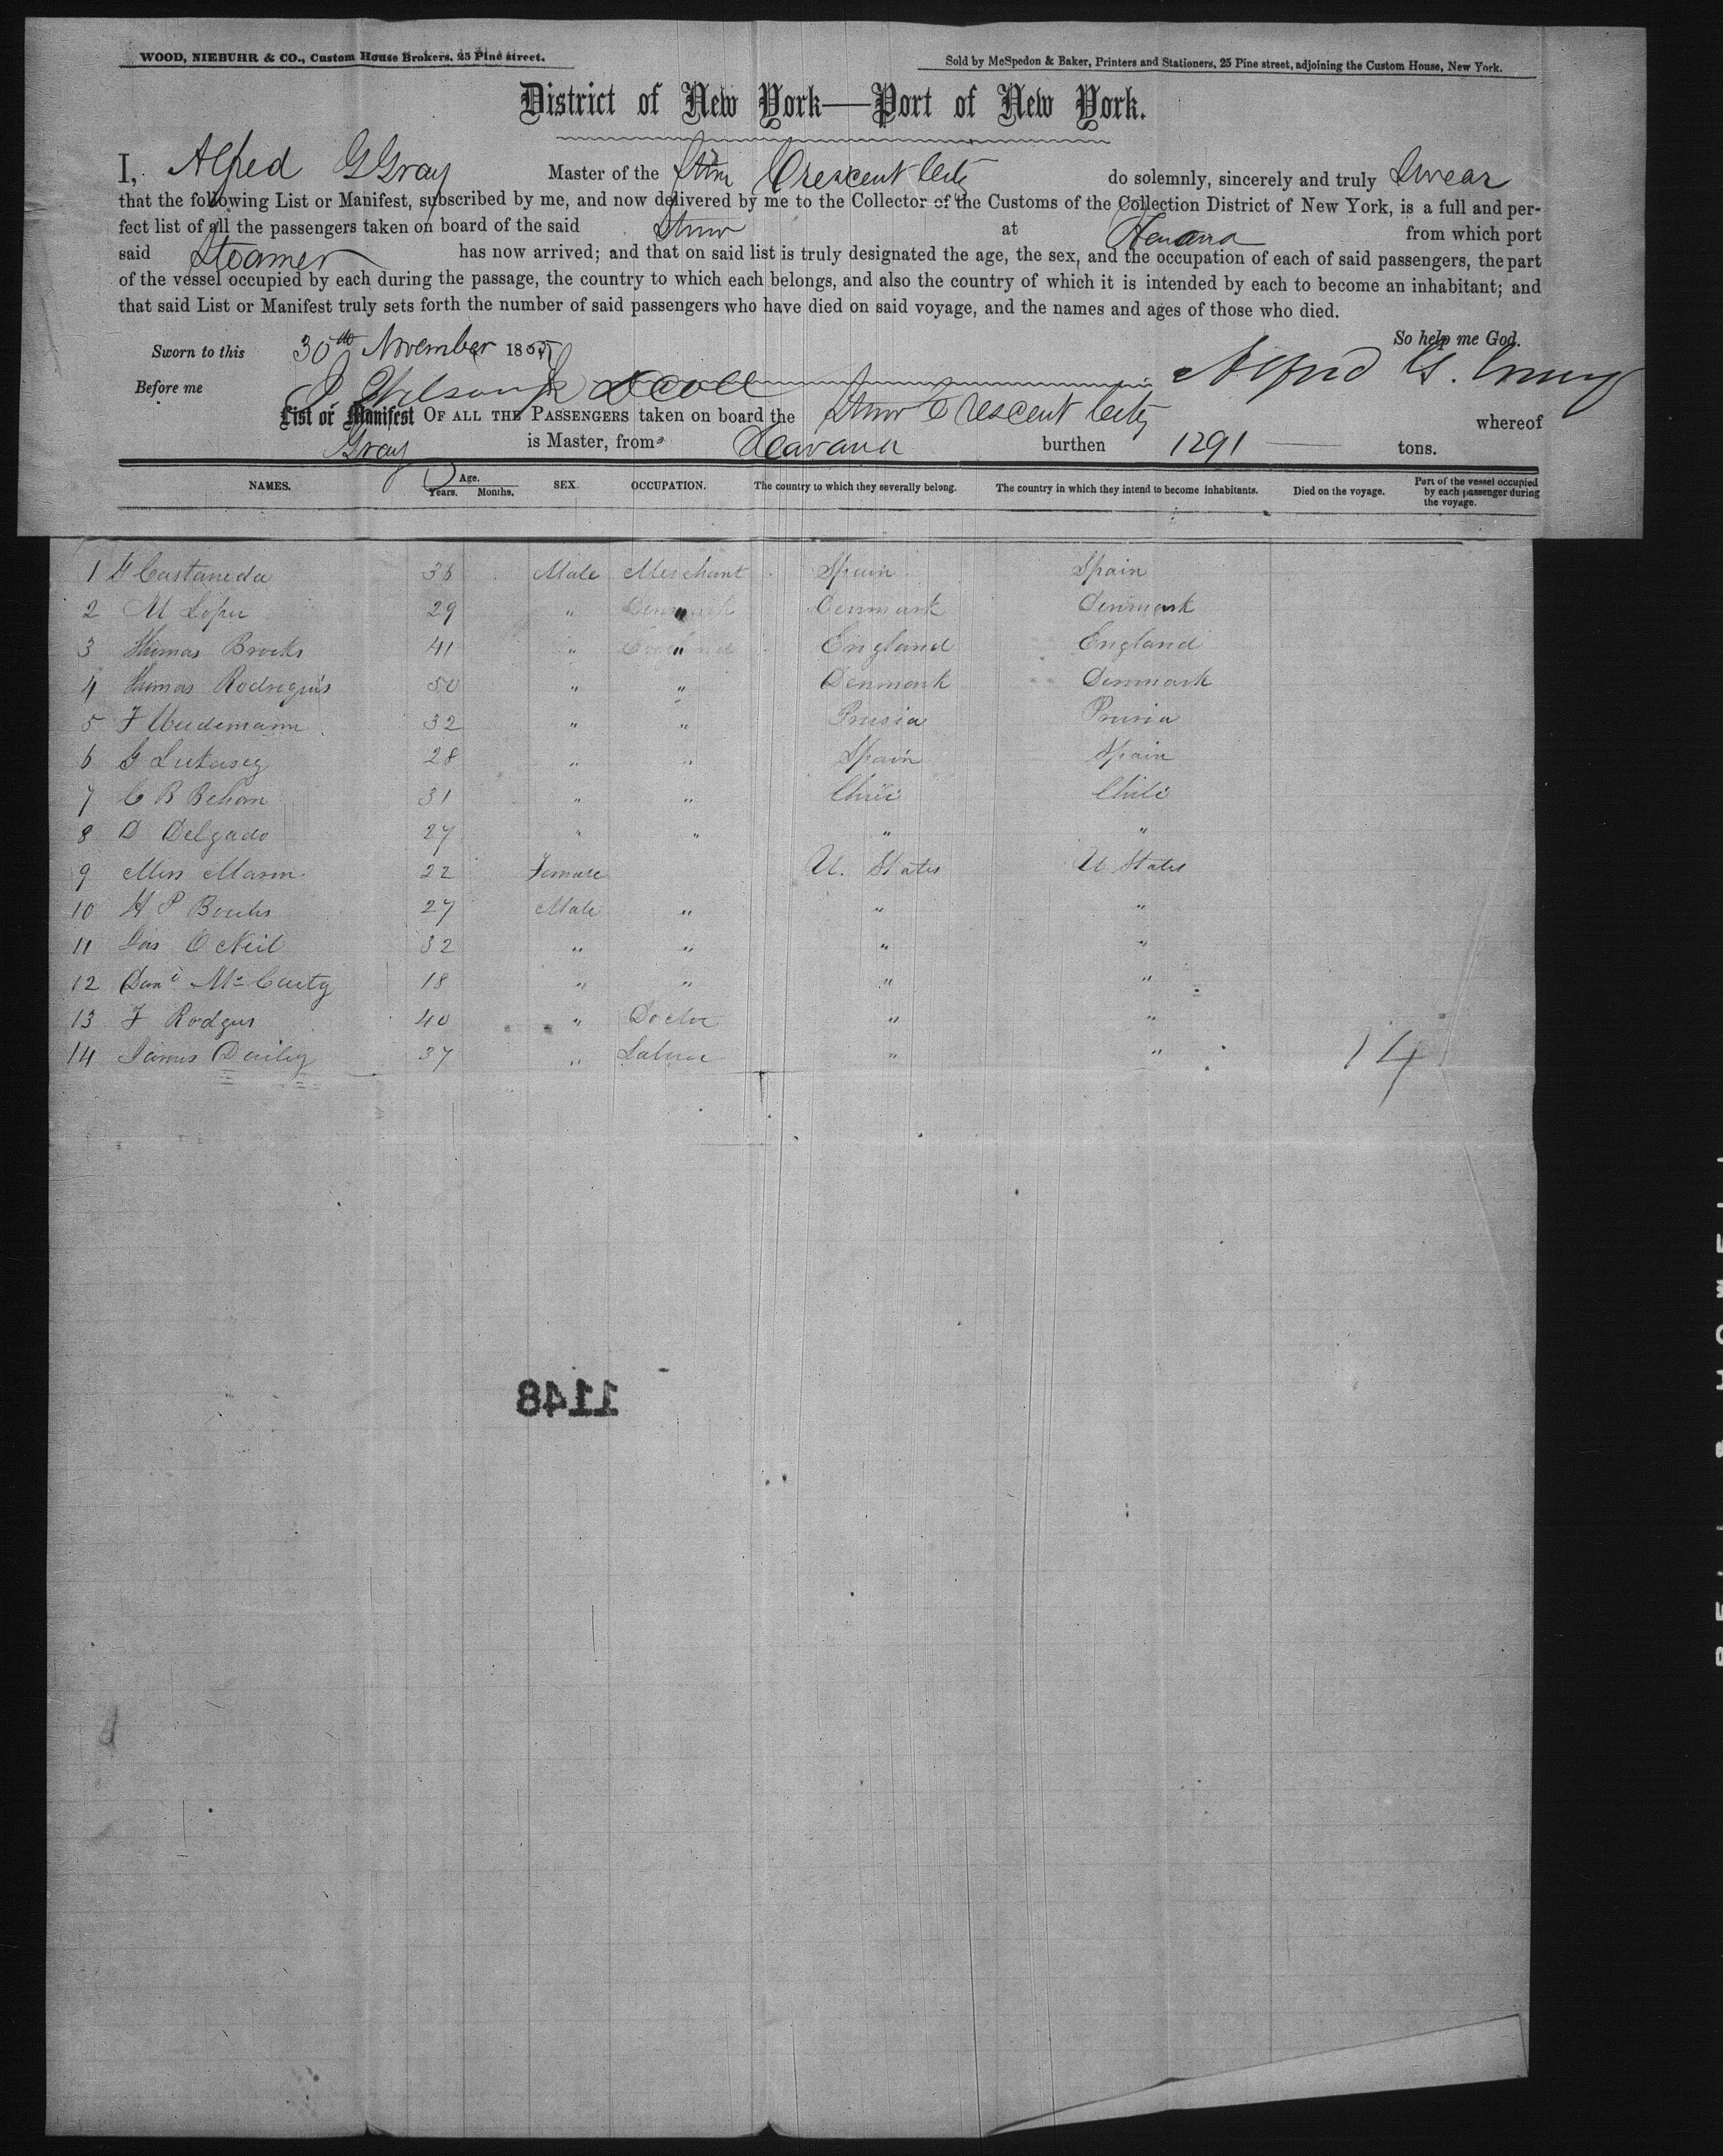 WOOD, NIEBUHR & CO., Custom House Brokers, 25 Pine street.
Sold by McSpedon & Baker, Printers and Stationers, 25 Pine street, adjoining the Custom House, New York.
District of New York—Port of New York.
I, Alfred G Gray Master of the Stmr Crescent City do solemnly, sincerely and truly Swear
that the following List or Manifest, subscribed by me, and now delivered by me to the Collector of the Customs of the Collection District of New York, is a full and per-
fect list of all the passengers taken on board of the said Stmr at Havana from which port
said Steamer has now arrived; and that on said list is truly designated the age, the sex, and the occupation of each of said passengers, the part
of the vessel occupied by each during the passage, the country to which each belongs, and also the country of which it is intended by each to become an inhabitant; and
that said List or Manifest truly sets forth the number of said passengers who have died on said voyage, and the names and ages of those who died.
So help me God.
Sworn to this 30th November 185
Before me Alfred G. Gray
List or Manifest OF ALL THE PASSENGERS taken on board the Stmr Crescent City whereof
Gray is Master, from Havana burthen 1291 tons.
NAMES. Age. Years. Months. SEX. OCCUPATION. The country to which they severally belong. The country in which they intend to become inhabitants. Died on the voyage. Part of the vessel occupied by each passenger during the voyage.
1 Castaneda 36 Male Merchant Spain Spain
2 M 29 " " Denmark Denmark
3 Thomas Brooks 41 " " England England
4 Thomas Rodregues 50 " " Denmark Denmark
5 F 32 " " Prusia Prusia
6 G 28 " " Spain Spain
7 C B Behom 31 " " Chili Chili
8 D Delgado 27 " " " "
9 Miss 22 Female U. States U States
10 H P 27 Male " " "
11 O Neil 32 " " " "
12 Danl McCarty 18 " " " "
13 F Rodgers 40 " Doctor " "
14 James Dailey 37 " Laborer " "
14
1148